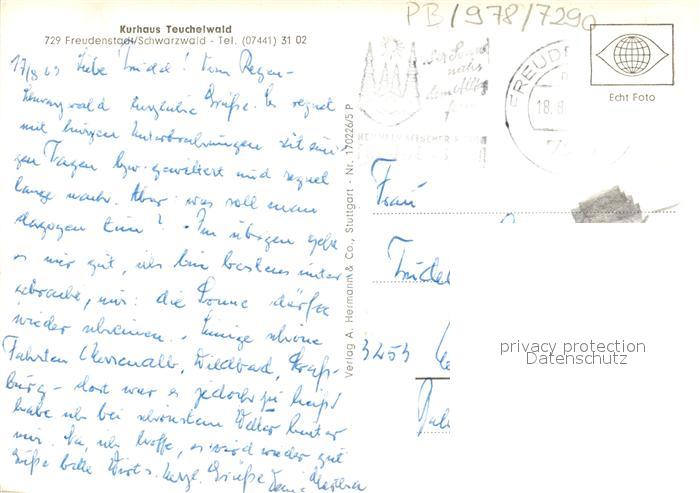 PB/978/7290
Kurhaus Teuchelwald
729 Freudenstadt/Schwarzwald - Tel. (07441) 31 02
Echt Foto
FREUD
18.8.
17/8 69 Liebe Trudel! Vom Regen-
herzliche Grüße. Es regnet
mit kurzen Unterbrechungen seit eini-
gen Tagen bzw. gewittert und regnet
lange nachts. Aber was soll man
dagegen tun? Im übrigen geht
es mir gut, ich bin bestens unter
gebracht, nur: die Sonne dürfte
wieder scheinen. Einige schöne
Fahrten Herrenalb, Wildbad, Straß-
burg - dort war es jedoch zu heiß!
habe ich bei schönstem Wetter hinter
mir. Na, ich hoffe, es wird wieder gut
Grüße bitte Herzl. Grüße
Verlag A. Hermann & Co., Stuttgart - Nr. 170226/5 P
Frau
Trudel
3253
privacy protection
Datenschutz